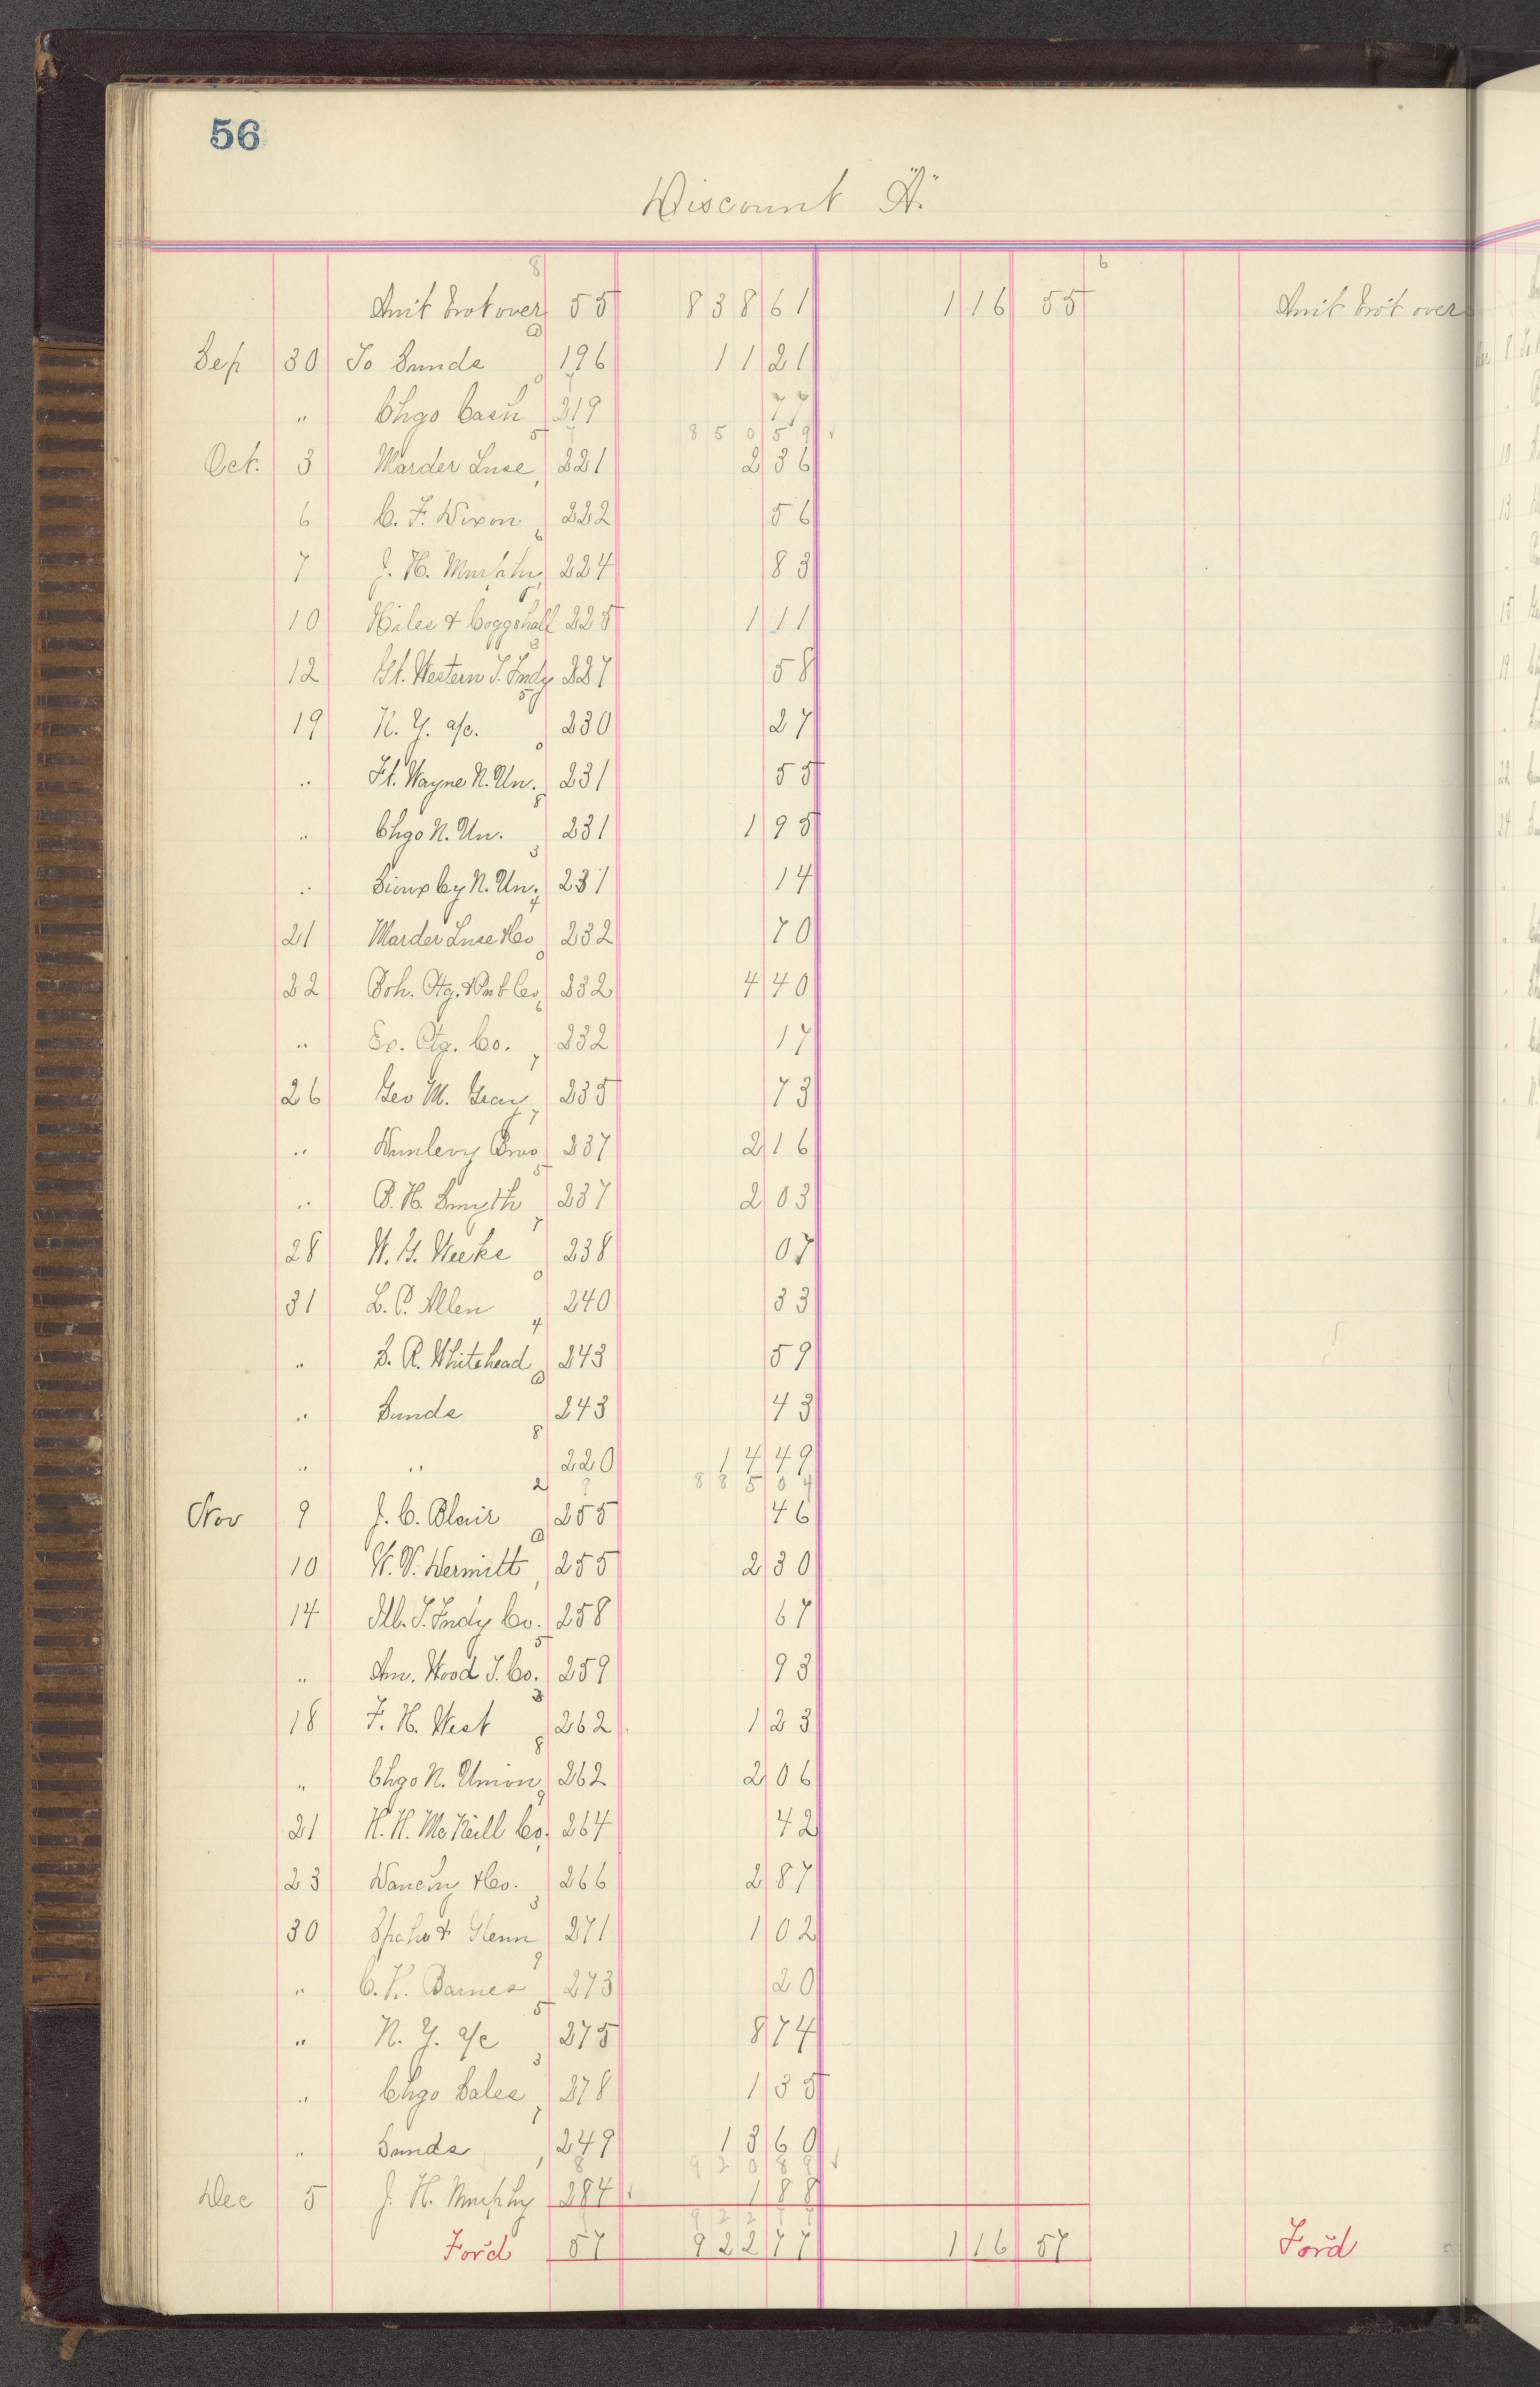 56
Discount "A"
Am't bro't over 55 838 61 1 16 55 Am't bro't over
Sep 30 To Sunds 196 11 21
" Chgo Cash 219 77
850 59
Oct. 3 Marder Luse 221 2 36
6 C. F. Dixon 222 56
7 J. H. Murphy 224 83
10 Hiles & Coggshall 225 1 11
12 Gt. Western T. Fndy 227 58
19 N. Y. a/c. 230 27
" Ft. Wayne N. Un. 231 55
" Chgo N. Un. 231 1 95
" Sioux Cy N. Un. 231 14
21 Marder Luse & Co 232 70
22 Boh. Ptg. & Pub Co 232 4 40
" Ex. Ptg. Co. 232 17
26 Geo M. Gray 235 73
" Dunlevy Bros 237 2 16
" B. H. Smyth 237 2 03
28 W. G. Weeks 238 07
31 L. P. Allen 240 33
" S. R. Whitehead 243 59
" Sunds 243 43
" " 220 14 49
885 04
Nov 9 J. C. Blair 255 46
10 W. V. Dermitt 255 2 30
14 Ill. T. Fndy Co. 258 67
" Am. Wood T. Co. 259 93
18 F. H. West 262 1 23
" Chgo N. Union 262 2 06
21 H. H. McNeill Co. 264 42
23 & Co. 266 2 87
30 & Glenn 271 1 02
" C. K. Barnes 273 20
" N. Y. a/c 275 8 74
" Chgo Sales 278 1 35
" Sunds 249 13 60
920 89
Dec 5 J. H. Murphy 284 1 88
For'd 57 922 77 1 16 57 For'd